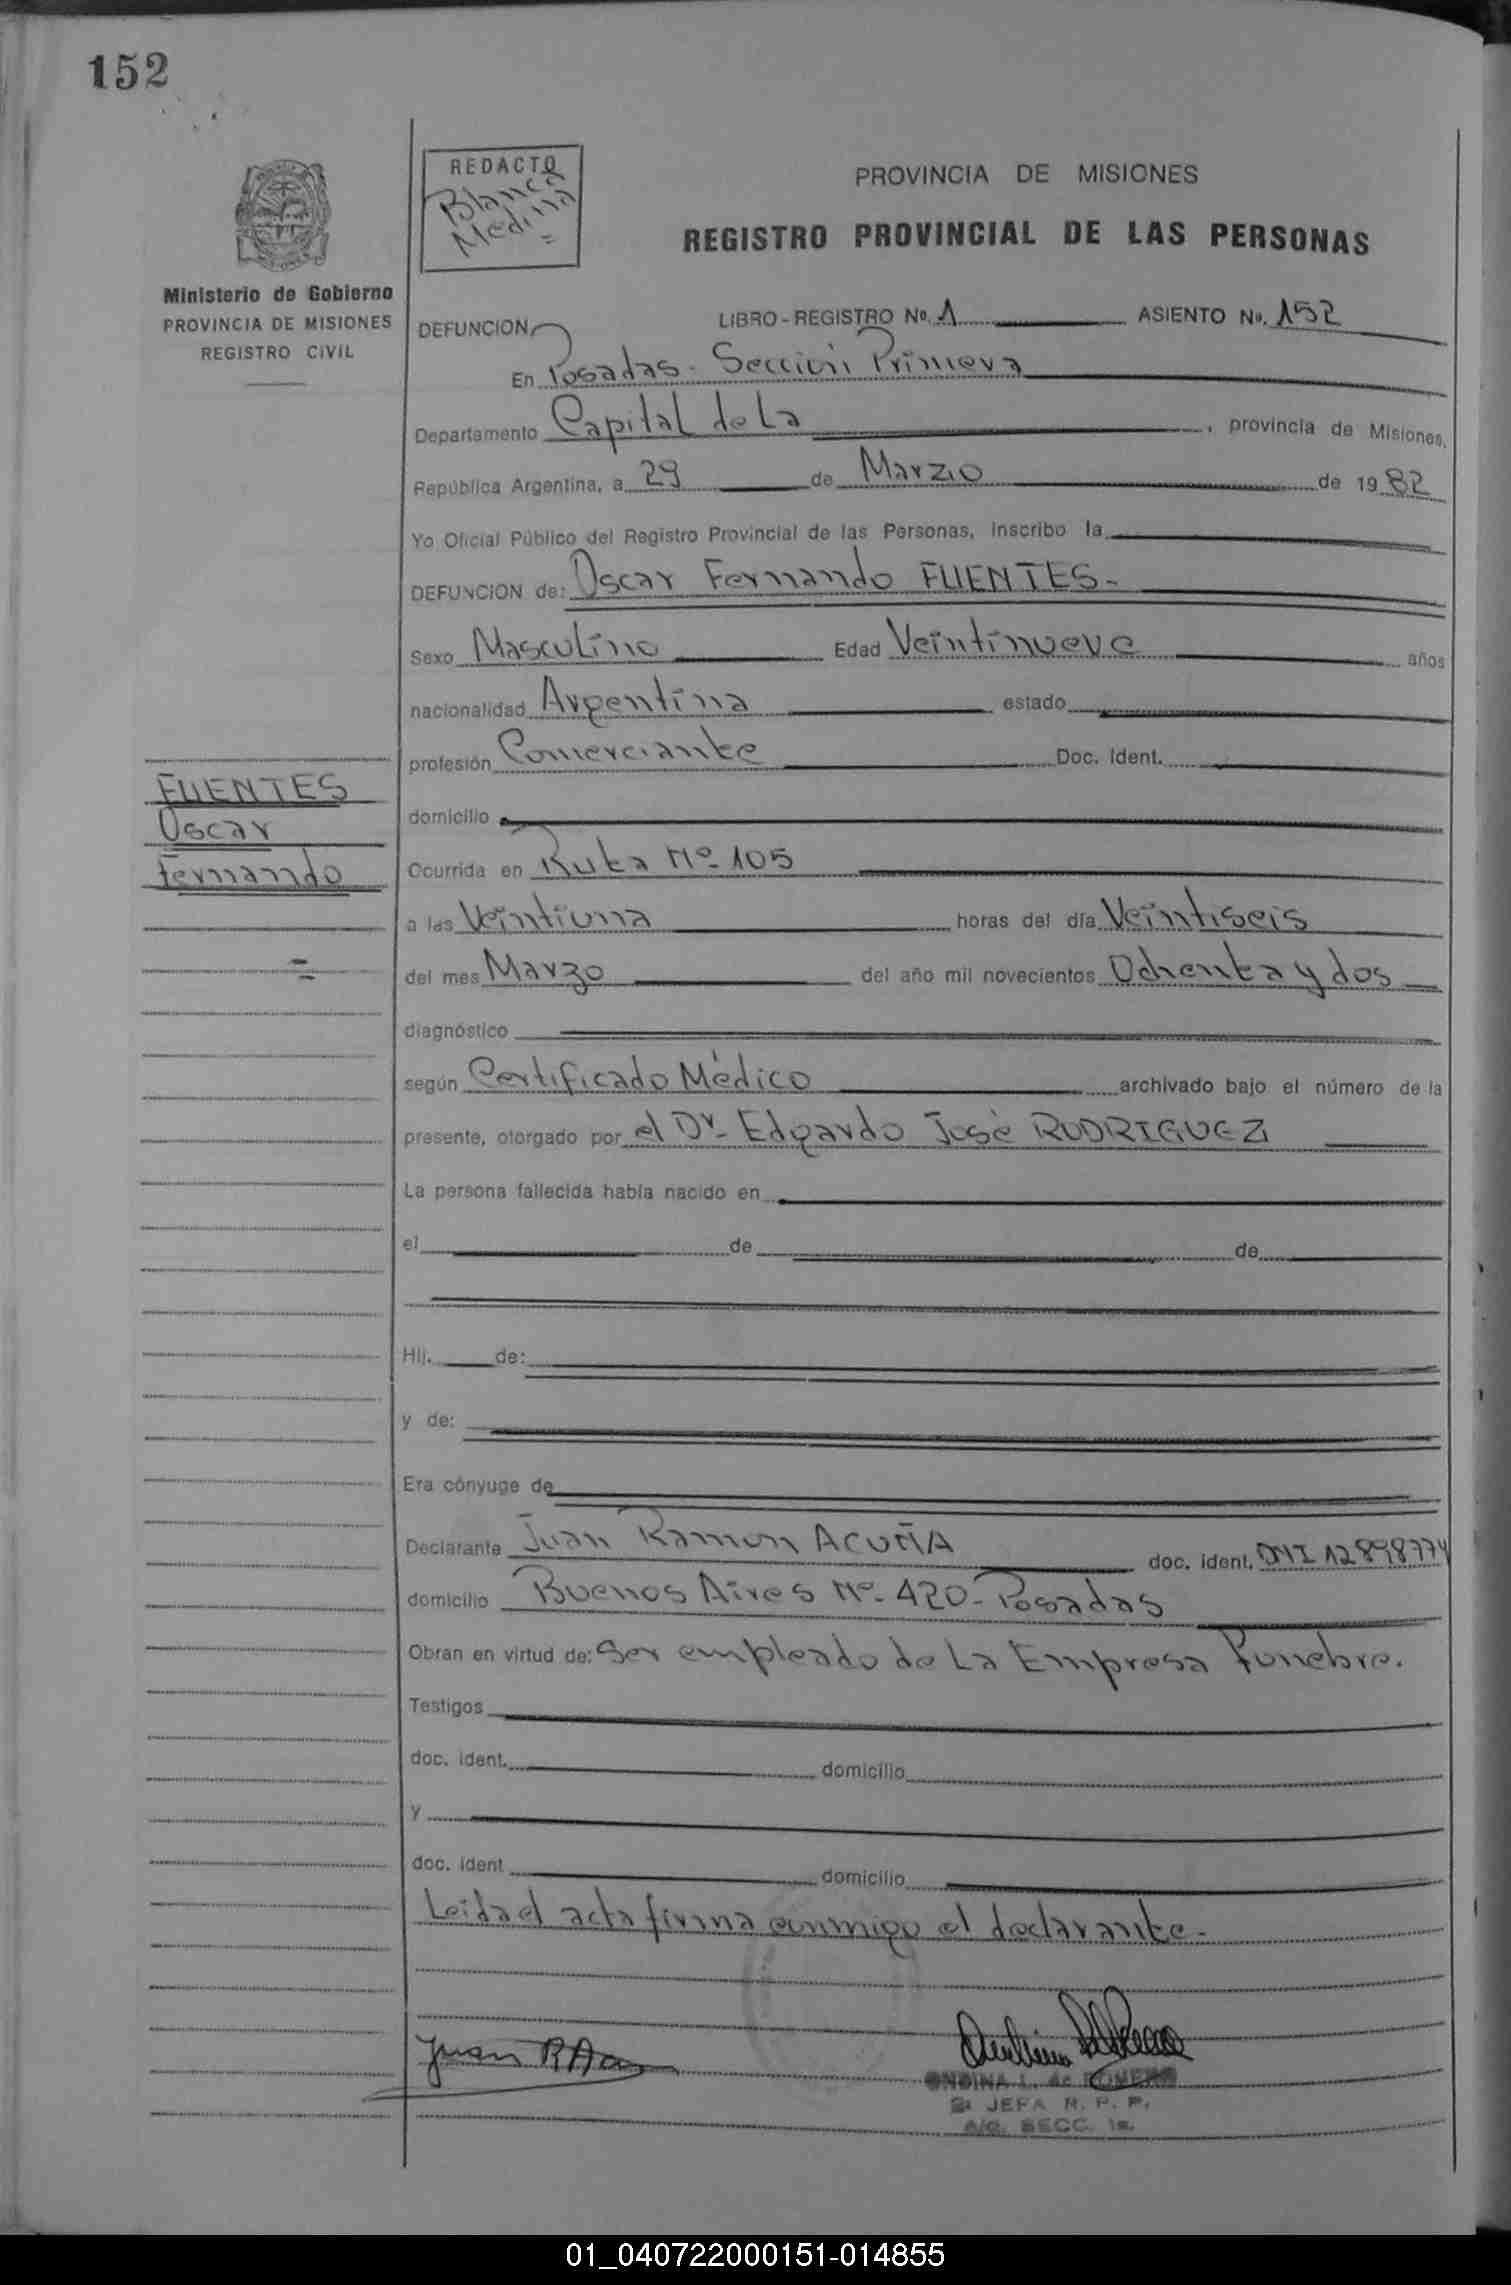 152
REDACTO
Blanca
Medina
PROVINCIA DE MISIONES
REGISTRO PROVINCIAL DE LAS PERSONAS
Ministerio de Gobierno
PROVINCIA DE MISIONES
REGISTRO CIVIL
DEFUNCION LIBRO - REGISTRO Nº. 1 ASIENTO Nº. 152
En Posadas - Sección Primera
Departamento Capital de La , provincia de Misiones,
República Argentina, a 29 de Marzo de 19 82
Yo Oficial Público del Registro Provincial de las Personas, inscribo la
DEFUNCION de: Oscar Fernando FUENTES-
Sexo Masculino Edad Veintinueve años
nacionalidad Argentina estado
profesión Comerciante Doc. Ident.
FUENTES
Oscar
Fernando
domicilio
Ocurrida en Ruta Nº 105
a las Veintiuna horas del día Veintiseis
del mes Marzo del año mil novecientos Ochenta y dos
diagnóstico
según Certificado Médico archivado bajo el número de la
presente, otorgado por el Dr. Edgardo José RODRIGUEZ
La persona fallecida había nacido en
el de de
Hij. de:
y de:
Era cónyuge de
Declarante Juan Ramon ACUÑA doc. ident. DNI 12898774
domicilio Buenos Aires Nº 420- Posadas
Obran en virtud de: Ser empleado de La Empresa funebre.
Testigos
doc. ident. domicilio
y
doc. ident domicilio
Leida el acta firma conmigo el declarante-
Juan R A
ONDINA L. de ROMERO
JEFA R. P. P.
A/C. SECC. 1a.
01_040722000151-014855